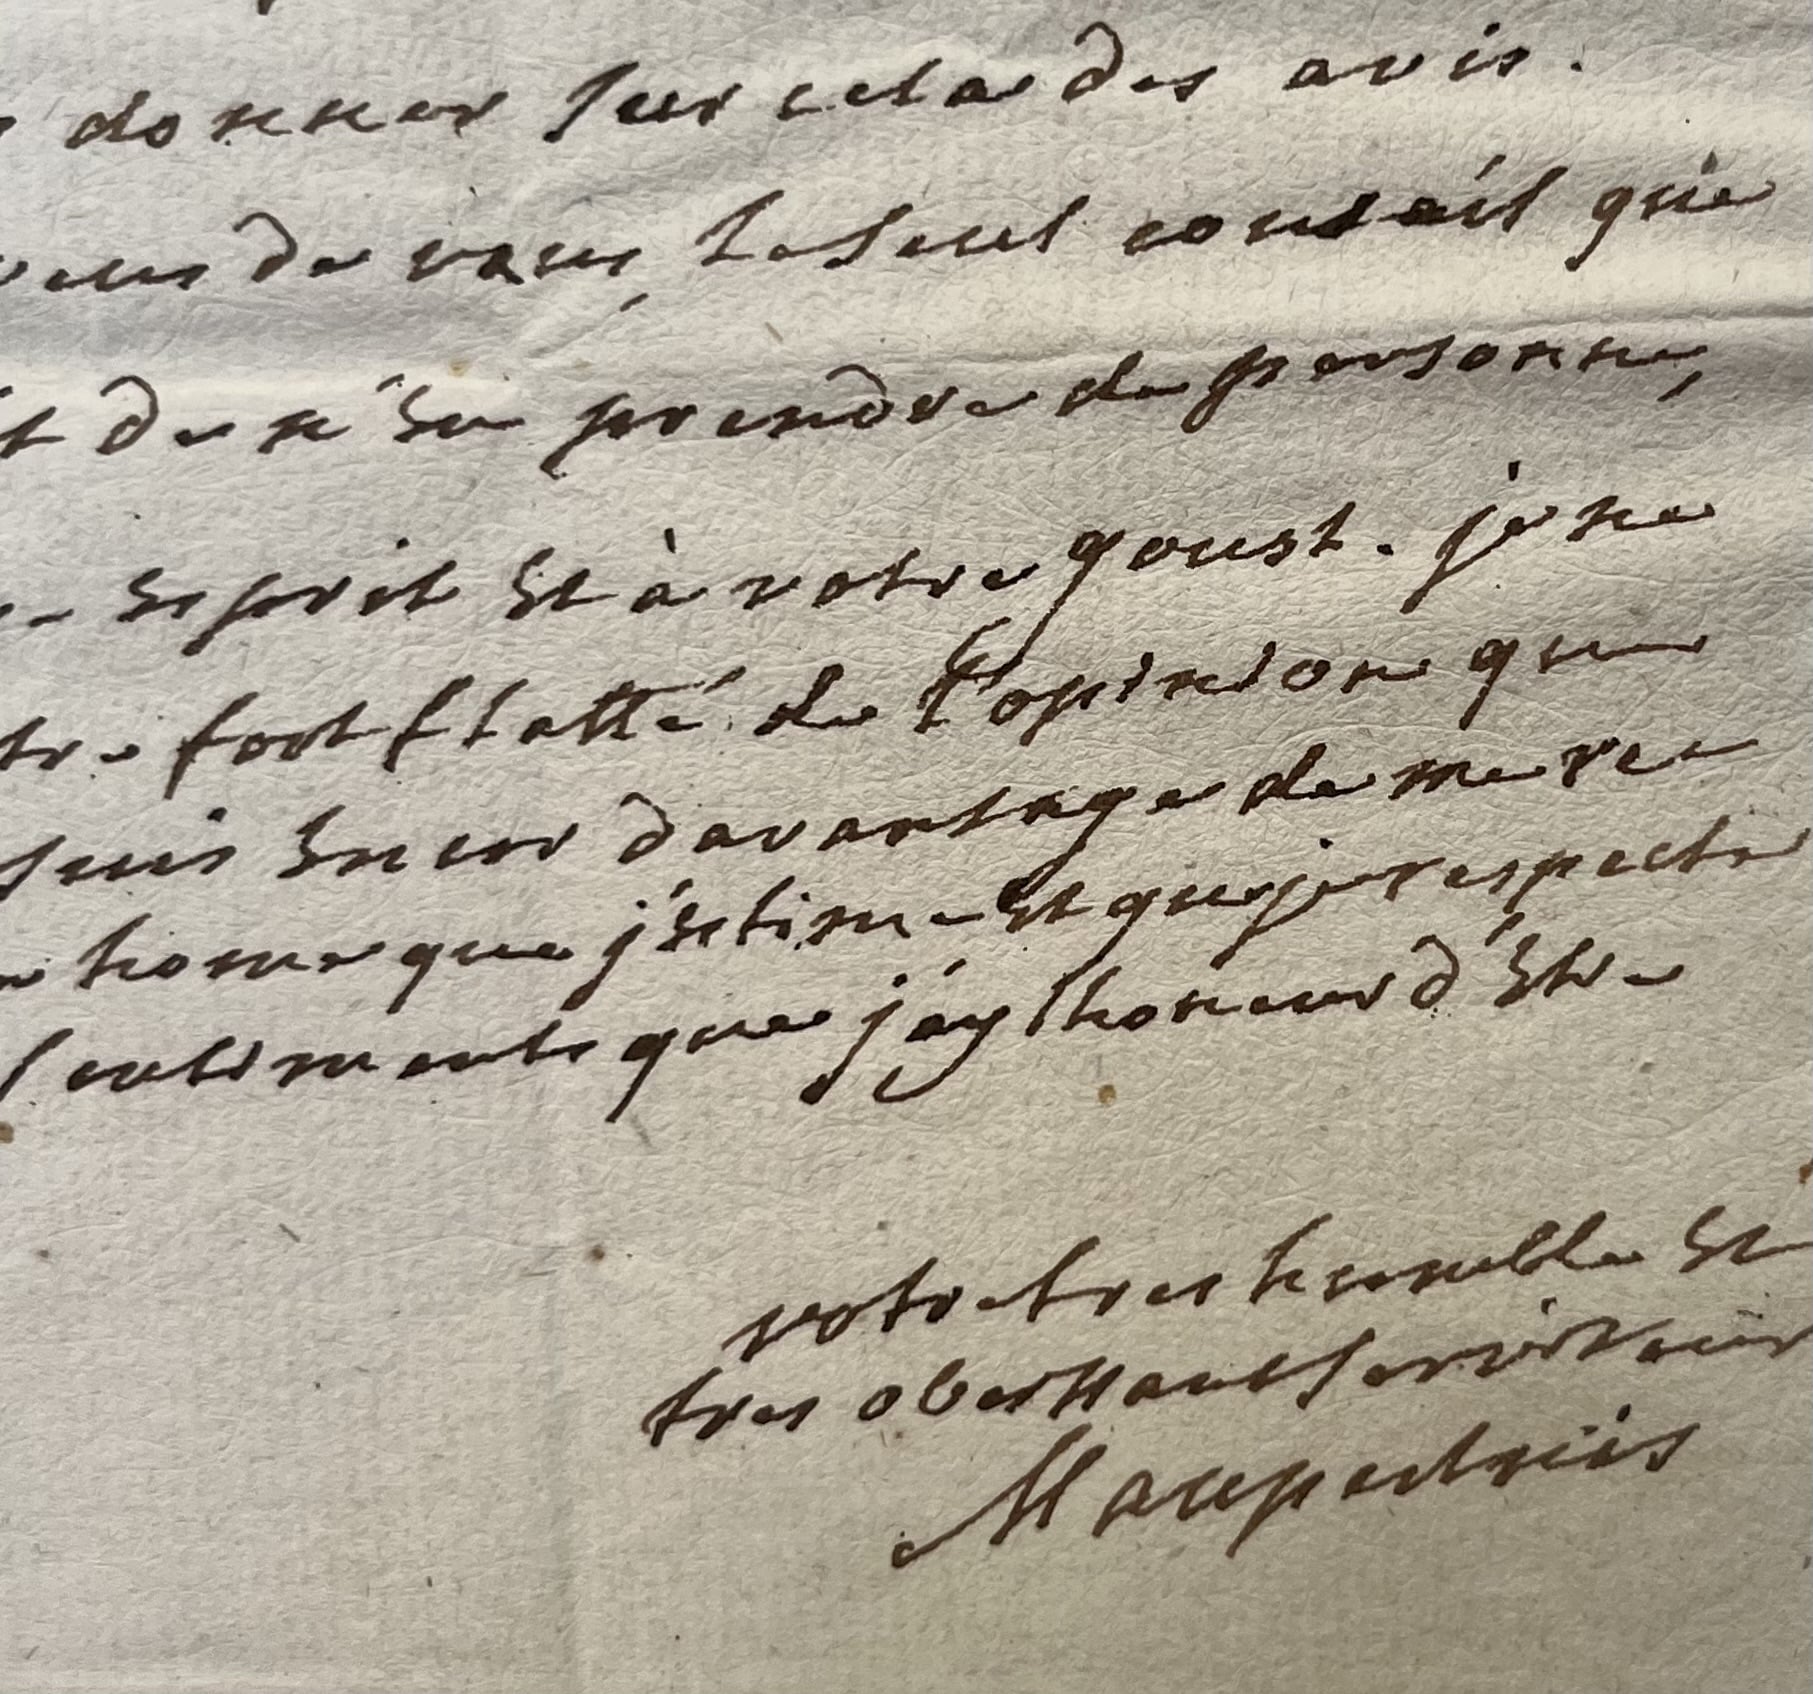 donner sur cela des avis.
de vous, le seul conseil que
de n'en prendre de personne,
esprit et à votre goust. je ne
fort flatté de l'opinion que
suis encor davantage de me re
home que j'estime et que je respecte
sentiments que j'ay lhoneur d'être
votre tres humble et
tres obeissant serviteur
Maupertuis